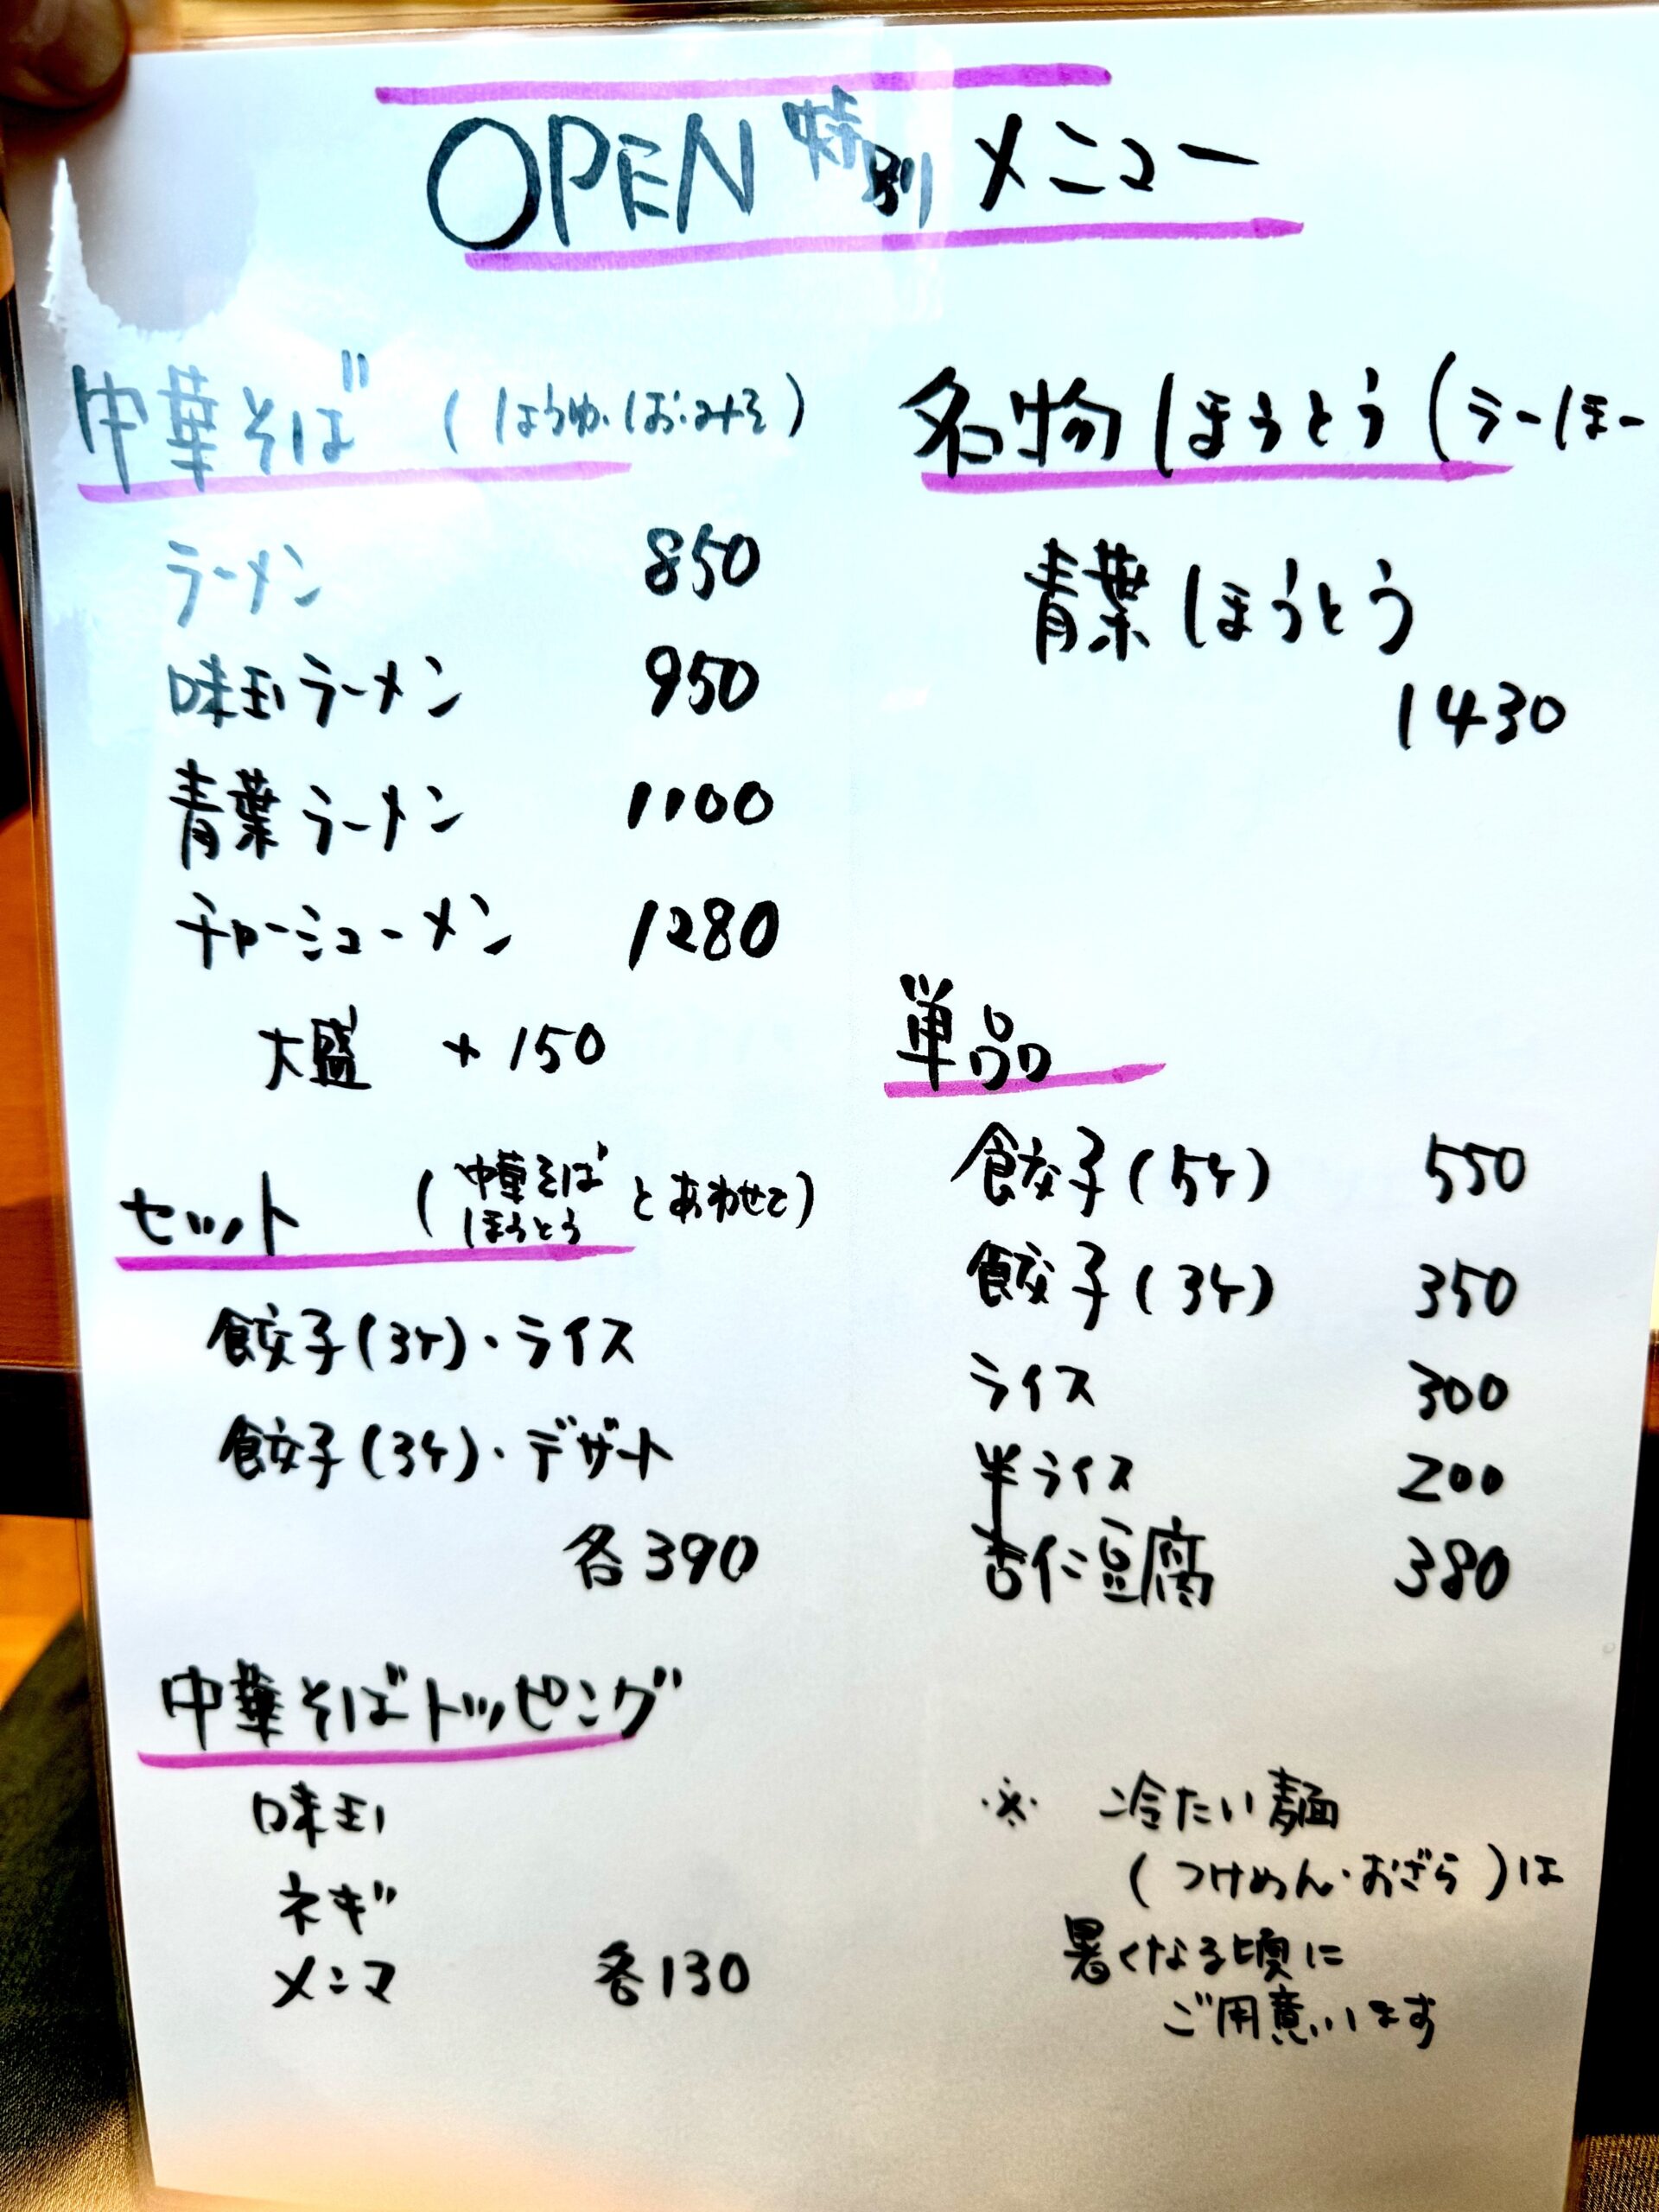 OPEN 特別メニュー
中華そば (しょうゆ・しお・みそ)
ラーメン 850
味玉ラーメン 950
青葉ラーメン 1100
チャーシューメン 1280
大盛 +150
セット (中華そば ほうとう とあわせて)
餃子(3ケ)・ライス
餃子(3ケ)・デザート
各390
中華そばトッピング
味玉
ネギ
メンマ 各130
名物ほうとう (ラーほー
青葉ほうとう
1430
単品
餃子(5ケ) 550
餃子(3ケ) 350
ライス 300
半ライス 200
杏仁豆腐 380
※ 冷たい麺
(つけめん・おざら)は
暑くなる頃に
ご用意します